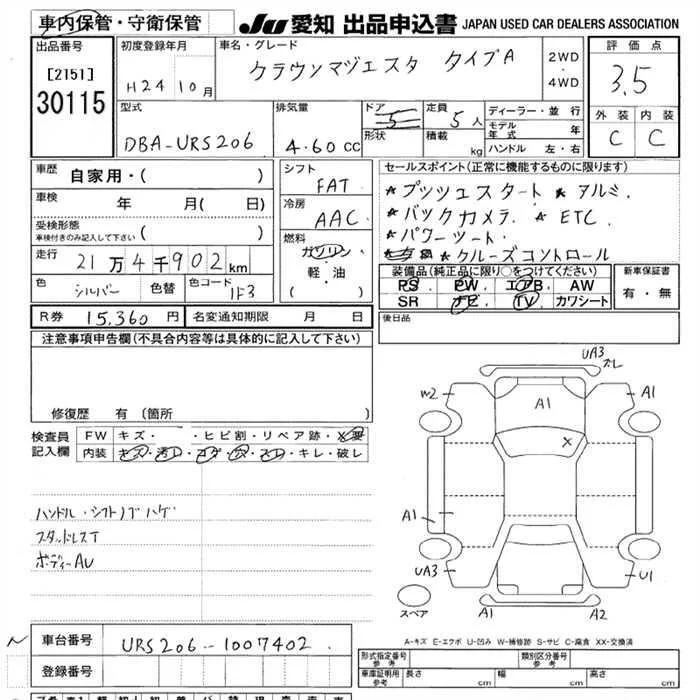 車内保管・守衛保管
JU 愛知 出品申込書 JAPAN USED CAR DEALERS ASSOCIATION
出品番号
[2151]
30115
初度登録年月
H24 10月
車名・グレード
クラウンマジェスタ タイプA
2WD
・
4WD
評価点
3.5
外装 内装
C C
型式
DBA-URS206
排気量
4.60 CC
ドア
5
形状
定員
5人
積載
kg
ディーラー・並行
モデル年式 年
ハンドル 左・右
車歴
自家用・( )
車検
年 月( 日)
受検形態
車検付きのみ記入して下さい ( )
走行
21万4千902km
色
シルバー
色替
色コード
1F3
シフト
FAT
冷房
AAC
燃料
ガソリン
軽・油
( )
セールスポイント(正常に機能するものに限ります)
★プッシュスタート ★アルミ
★バックカメラ ★ETC
★パワーシート
★クルーズコントロール
装備品(純正品に限り○をつけてください)
PS PW エアB AW
SR ナビ TV カワシート
新車保証書
有・無
R券 15,360円
名変通知期限 月 日
後日品
注意事項申告欄(不具合内容等は具体的に記入して下さい)
修復歴 有(箇所
検査員
記入欄
FW キズ・ ・ヒビ割・リペア跡・X要
内装 キズ・汚レ・コゲ・穴・スレ・キレ・破レ
ハンドル・シフトノブハゲ
スタッドレスT
ボディーAU
UA3
ズレ
W2
A1
A1
X
A1
UA3
U1
A1
A2
スペア
A-キズ E-エクボ U-凹み W-補修跡 S-サビ C-腐食 XX-交換済
車台番号
URS206-1007402
登録番号
形式指定番号
参考
類別区分番号
参考
車庫証明用
参考
長さ cm
幅 cm
高さ cm